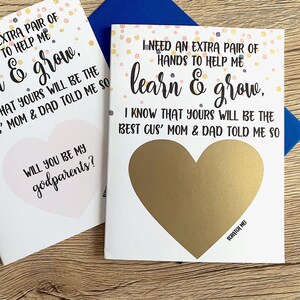 EXTRA PAIR OF
TO HELP ME
& grow,
THAT YOURS WILL BE THE
MOM & DAD TOLD ME SO
WILL YOU BE MY
godparents?
I NEED AN EXTRA PAIR OF
HANDS TO HELP ME
learn & grow,
I KNOW THAT YOURS WILL BE THE
BEST CUS' MOM & DAD TOLD ME SO
SCRATCH ME!